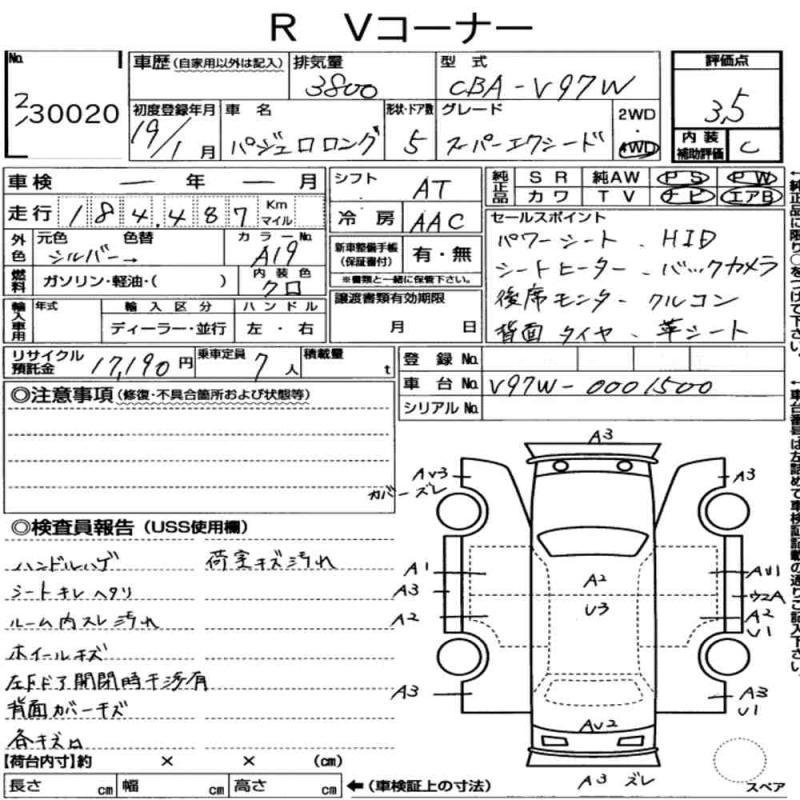 R Vコーナー
No. 230020
車歴（自家用以外は記入） 排気量 3800 型式 CBA-V97W
初度登録年月 19/1月 車名 パジェロロング 形状・ドア数 5 グレード スーパーエクシード 2WD・4WD
評価点 3.5
内装補助評価 C
車検 ー年ー月
走行 184,487 Km マイル
外色 元色 シルバー→ 色替 カラーNo. A19
燃料 ガソリン・軽油・（ ） 内装色 クロ
輸入車用 年式 輸入区分 ディーラー・並行 ハンドル 左・右
シフト AT
冷房 AAC
新車整備手帳（保証書付） 有・無
※書類と一緒に保管下さい。
譲渡書類有効期限
月 日
純正品 SR 純AW PS PW
カワ TV ナビ エアB
セールスポイント
パワーシート、HID
シートヒーター、バックカメラ
後席モニター、クルコン
背面タイヤ、革シート
リサイクル預託金 17,190円 乗車定員 7人 積載量 t
登録No.
車台No. V97W-0001500
シリアルNo.
◎注意事項（修復・不具合箇所および状態等）
◎検査員報告（USS使用欄）
ハンドルハゲ 荷室キズ汚れ
シートキレヘタリ
ルーム内スレ汚れ
ホイールキズ
左Fドア開閉時干渉有
背面カバーキズ
各キズロ
【荷台内寸】約 × × （cm）
長さ cm 幅 cm 高さ cm ←（車検証上の寸法）
A3
AV3 A3
カバーズレ
A1 A2 AV1
A3 V3 ウスA
A2 A2
V1
A3 A3
V1
AV2
A3 ズレ
スペア